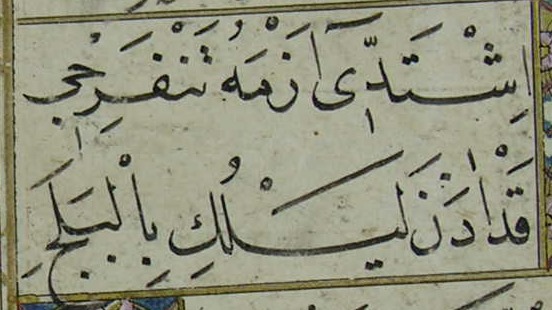 اِشْتَدِّى اَزْمَةُ تَنْفَرِجِى
قَدْ اٰذَنَ لَيْلُكِ بِالْبَلَجِ